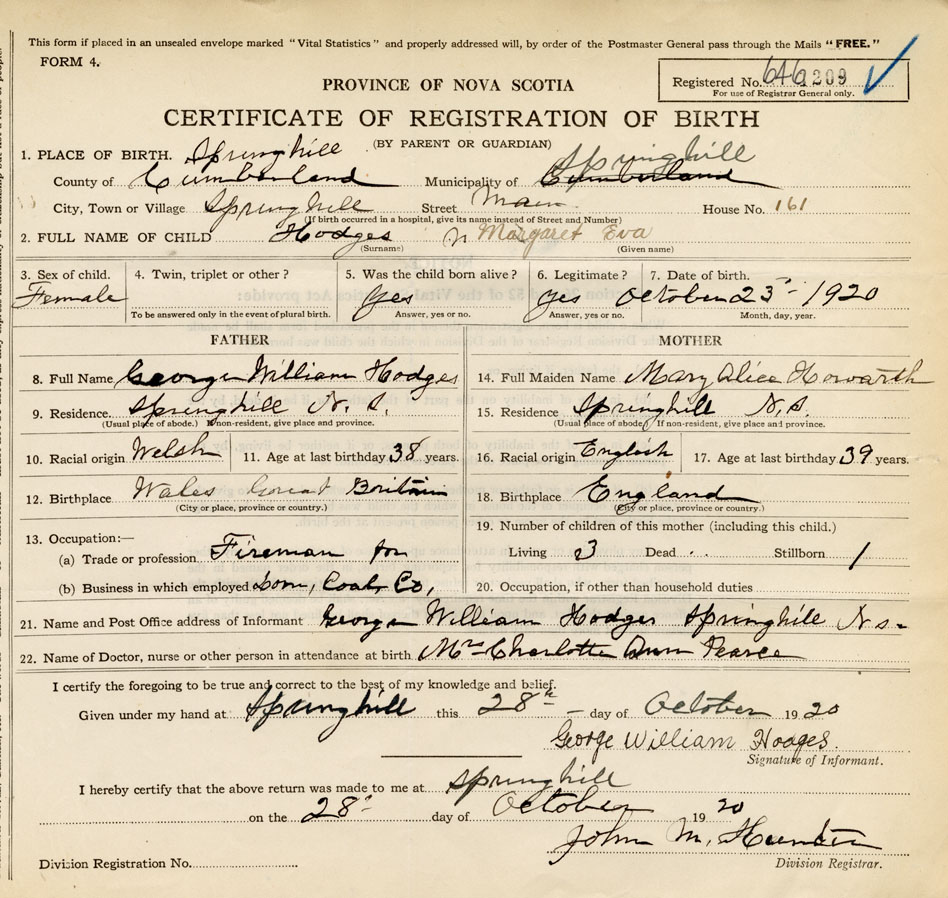 This form if placed in an unsealed envelope marked "Vital Statistics" and properly addressed will, by order of the Postmaster General pass through the Mails "FREE."
FORM 4.
PROVINCE OF NOVA SCOTIA
Registered No. 646 209
For use of Registrar General only.
CERTIFICATE OF REGISTRATION OF BIRTH
(BY PARENT OR GUARDIAN)
1. PLACE OF BIRTH. Springhill Springhill
County of Cumberland Municipality of Cumberland
City, Town or Village Springhill Street Main House No. 161
(If birth occurred in a hospital, give its name instead of Street and Number)
2. FULL NAME OF CHILD Hodges Margaret Eva
(Surname) (Given name)
3. Sex of child. 4. Twin, triplet or other? 5. Was the child born alive? 6. Legitimate? 7. Date of birth.
Female Yes yes October 23 - 1920
To be answered only in the event of plural birth. Answer, yes or no. Answer, yes or no. Month, day, year.
FATHER MOTHER
8. Full Name George William Hodges 14. Full Maiden Name Mary Alice Howarth
9. Residence. Springhill N. S. 15. Residence Springhill N.S.
(Usual place of abode.) If non-resident, give place and province. (Usual place of abode) If non-resident, give place and province.
10. Racial origin Welsh 11. Age at last birthday 38 years. 16. Racial origin English 17. Age at last birthday 39 years.
12. Birthplace Wales Great Britain 18. Birthplace England
(City or place, province or country.) (City or place, province or country.)
13. Occupation:— 19. Number of children of this mother (including this child.)
(a) Trade or profession Fireman for Living 3 Dead Stillborn 1
(b) Business in which employed Dom, Coal, Co, 20. Occupation, if other than household duties
21. Name and Post Office address of Informant George William Hodges Springhill N s-
22. Name of Doctor, nurse or other person in attendance at birth Mrs Charlotte Ann Pearce
I certify the foregoing to be true and correct to the best of my knowledge and belief.
Given under my hand at Springhill this 28th day of October 1920
George William Hodges.
Signature of Informant.
I hereby certify that the above return was made to me at Springhill
on the 28 day of October 1920
John M. Hunter
Division Registrar No. Division Registrar.